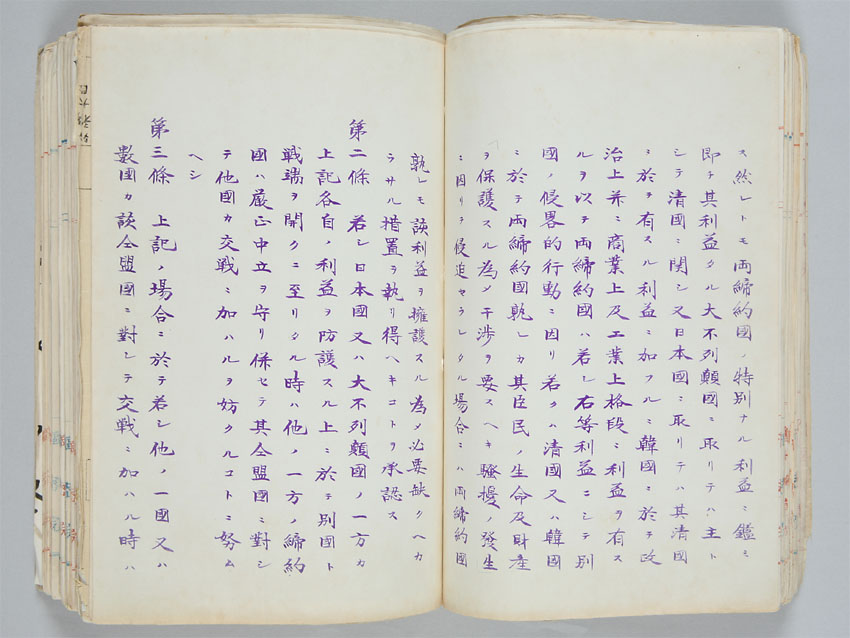 ス然レトモ両締約國ノ特別ナル利益ニ鑑ミ
即チ其利益タル大不列顛國ニ取リテハ主ト
シテ清國ニ関シ又日本國ニ取リテハ其清國
ニ於テ有スル利益ニ加フルニ韓國ニ於テ政
治上并ニ商業上及工業上格段ニ利益ヲ有ス
ルヲ以テ両締約國ハ若シ右等利益ニシテ別
國ノ侵畧的行動ニ因リ若クハ清國又ハ韓國
ニ於テ両締約國孰レカ其臣民ノ生命及財産
ヲ保護スル為メ干渉ヲ要スヘキ騒擾ノ發生
ニ因リテ侵迫セラレタル場合ニハ両締約國
孰レモ該利益ヲ擁護スル為メ必要缺クヘカ
ラサル措置ヲ執リ得ヘキコトヲ承認ス
第二條 若シ日本國又ハ大不列顛國ノ一方カ
上記各自ノ利益ヲ防護スル上ニ於テ別國ト
戦端ヲ開クニ至リタル時ハ他ノ一方ノ締約
國ハ厳正中立ヲ守リ併セテ其仝盟國ニ對シ
テ他國カ交戦ニ加ハルヲ妨クルコトニ努ム
ヘシ
第三條 上記ノ場合ニ於テ若シ他ノ一國又ハ
數國カ該仝盟國ニ對シテ交戦ニ加ハル時ハ